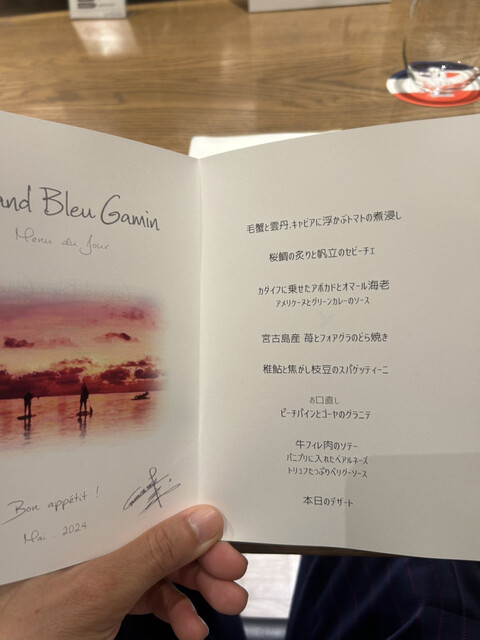 and Bleu Gamin
Menu du Jour
Bon appétit !
Mai . 2024
毛蟹と雲丹、キャビアに浮かぶトマトの煮浸し
桜鯛の炙りと帆立のセビーチェ
カダイフに乗せたアボカドとオマール海老
アメリケーヌとグリーンカレーのソース
宮古島産 苺とフォアグラのどら焼き
稚鮎と焦がし枝豆のスパゲッティーニ
お口直し
ピーチパインとゴーヤのグラニテ
牛フィレ肉のソテー
パニプリに入れたベアルネーズ
トリュフたっぷりペリグーソース
本日のデザート